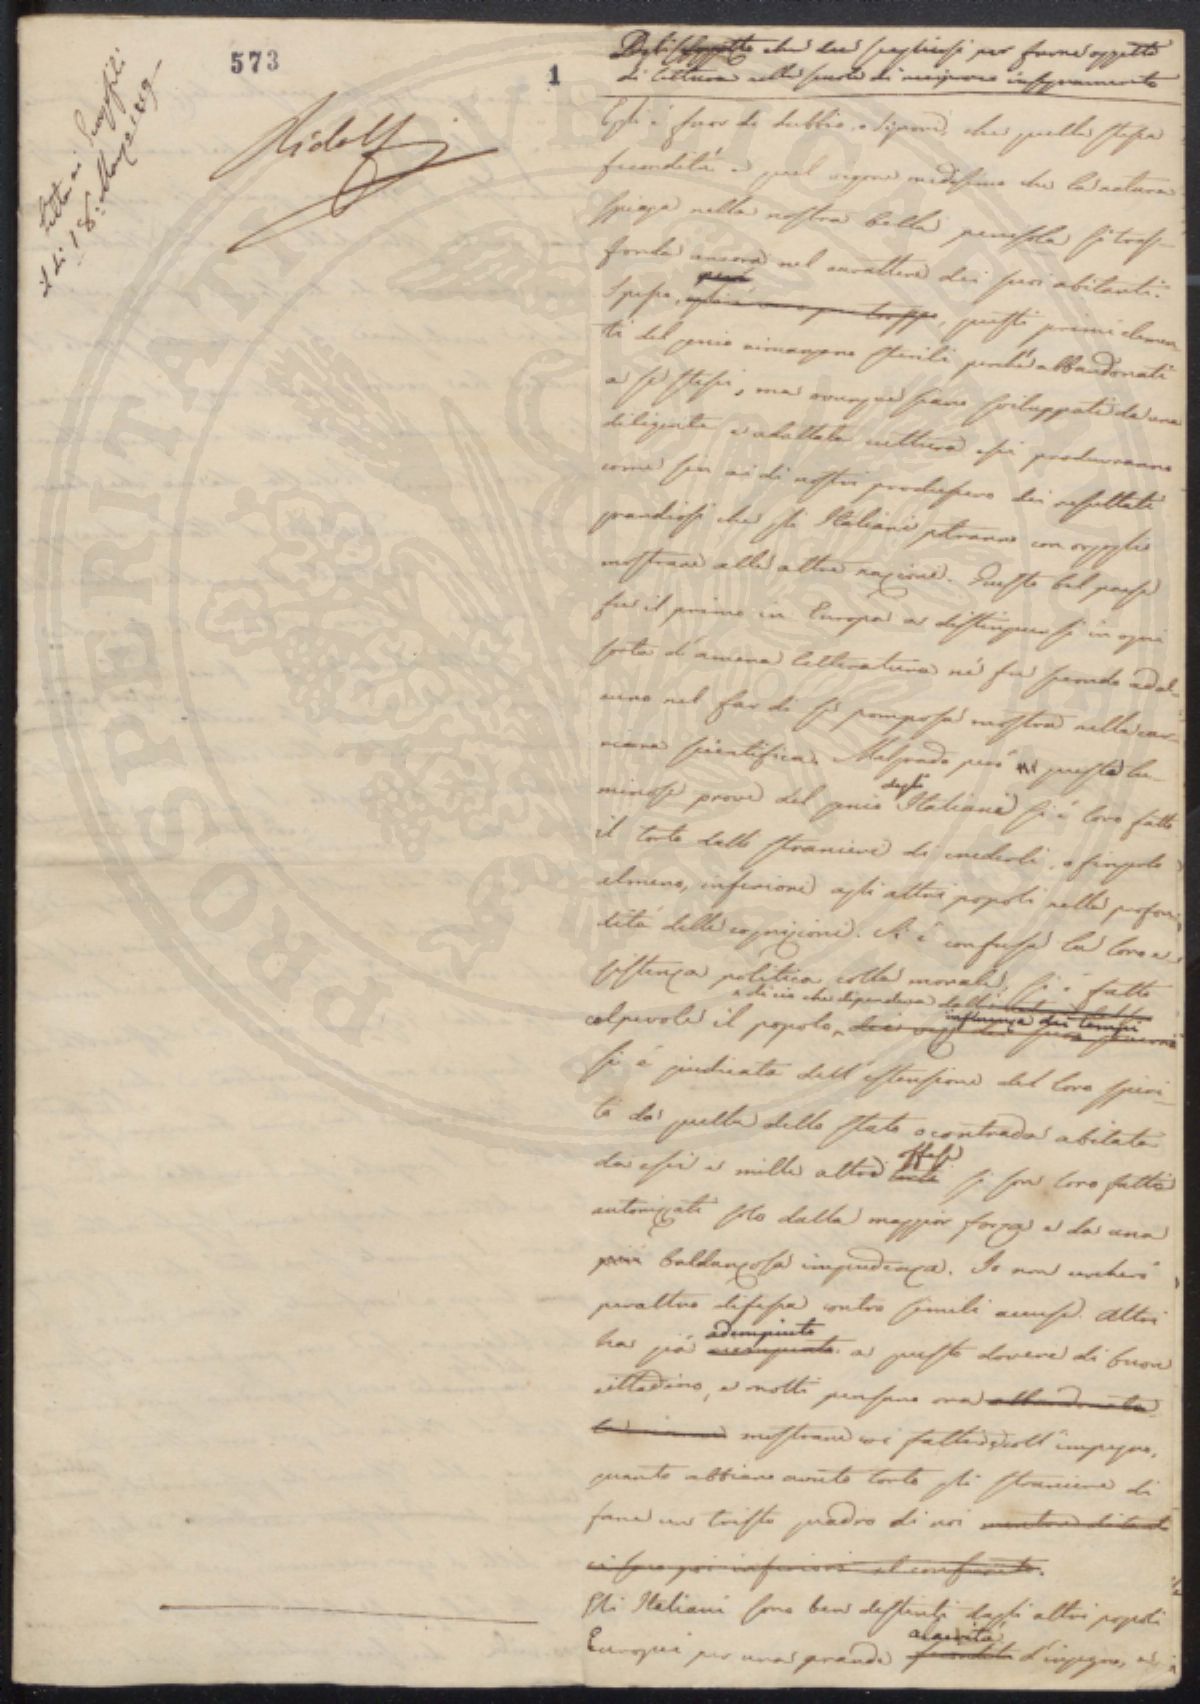 573
1
Letto ai Georgofili
il dì 18: Marzo 1819
Ridolfi
PROSPERITATI PUBLICAE
Degli Oggetti che dee scegliersi per farne oggetto
di lettura nelle scuole di reciproco insegnamento
Egli è fuor di dubbio, o Signori, che quella stessa
fecondità e quel vigore medesimo che la natura
spiega nella nostra bella penisola si tras-
fonda ancora nel carattere dei suoi abitanti.
però
Spesso, questi primi elemen
ti del genio rimangono sterili perché abbandonati
a se stessi, ma ovunque siano sviluppati da una
diligente e adattata cultura essi produrranno
come fin ai dì nostri produssero dei resultati
grandiosi che gli Italiani potranno con orgoglio
mostrare alle altre nazioni. Questo bel paese
fu il primo in Europa a distinguersi in ogni
sorta d'amena letteratura né fu secondo ad al-
cuno nel far di se pomposa mostra nella car-
riera scientifica. Malgrado però queste lu-
minose prove del genio degli Italiani si è loro fatto
il torto dallo straniero di crederli, o fingerlo
almeno, inferiori agli altri popoli nella profon
dità delle cognizioni. Si è confusa la loro e-
sistenza politica colla morale; si è fatto
e di ciò che dipendeva dall'
influenza dei tempi
colpevole il popolo,
si è giudicato dell'estensione del loro spiri-
to da quella dello stato o contrada abitata
offese
da essi e mille altri torti si son loro fatti
autorizzati solo dalla maggior forza e da una
più baldanzosa impudenza. Io non cercherò
peraltro difesa contro simili accuse. Altri
adempiuto
ha già a questo dovere di buon
cittadino, e molti pensano ora
mostrare coi fatti e coll'impegno,
quanto abbiano avuto torto gli stranieri di
fare un tristo quadro di noi
inferiori al confronto.
Gli Italiani sono ben distinti dagli altri popoli
vivacità
Europei per una grande fecondità d'ingegno, e